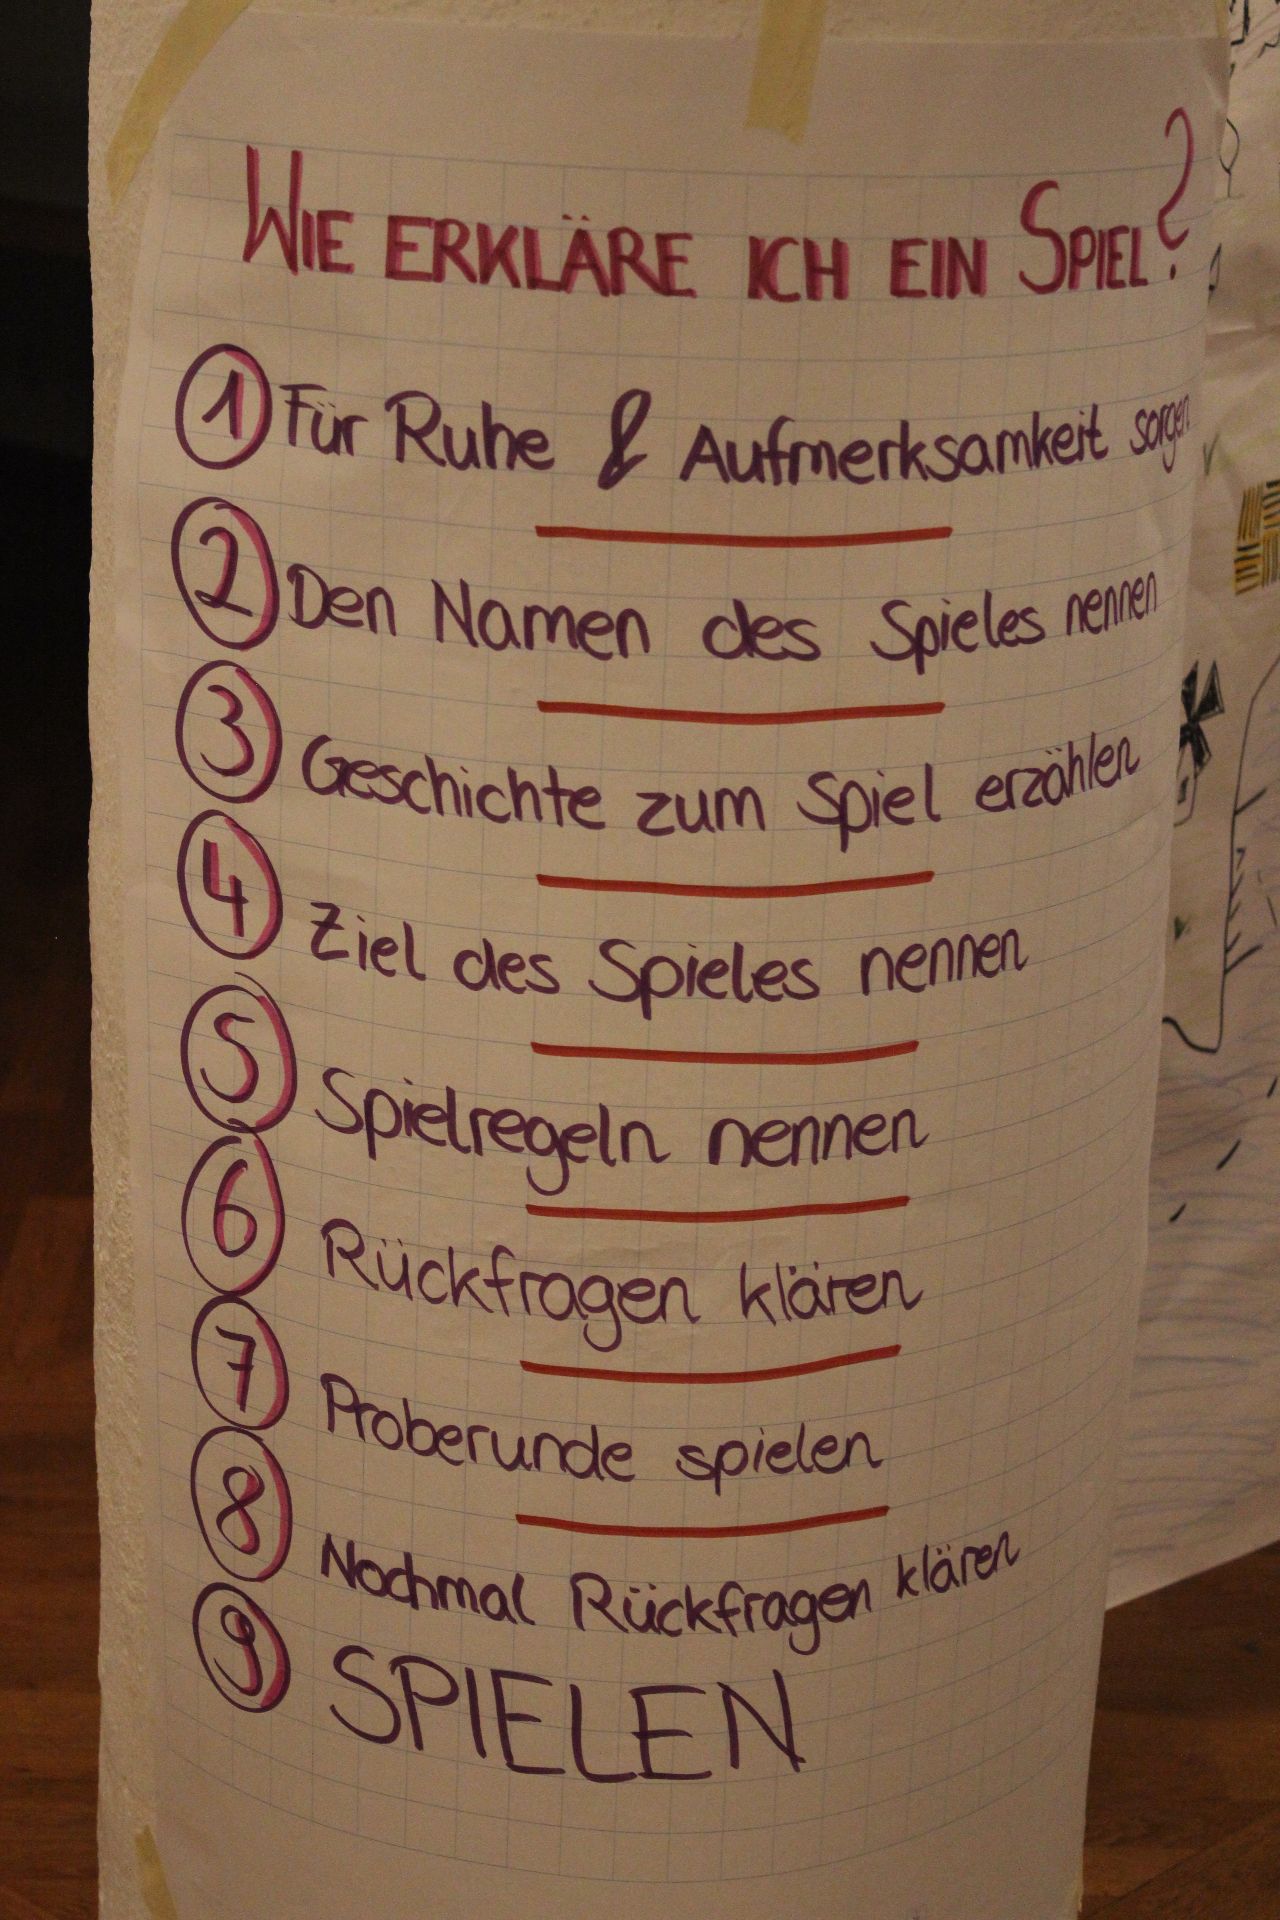 WIE ERKLÄRE ICH EIN SPIEL?
1 Für Ruhe & Aufmerksamkeit sorgen
2 Den Namen des Spieles nennen
3 Geschichte zum Spiel erzählen
4 Ziel des Spieles nennen
5 Spielregeln nennen
6 Rückfragen klären
7 Proberunde spielen
8 Nochmal Rückfragen klären
9 SPIELEN